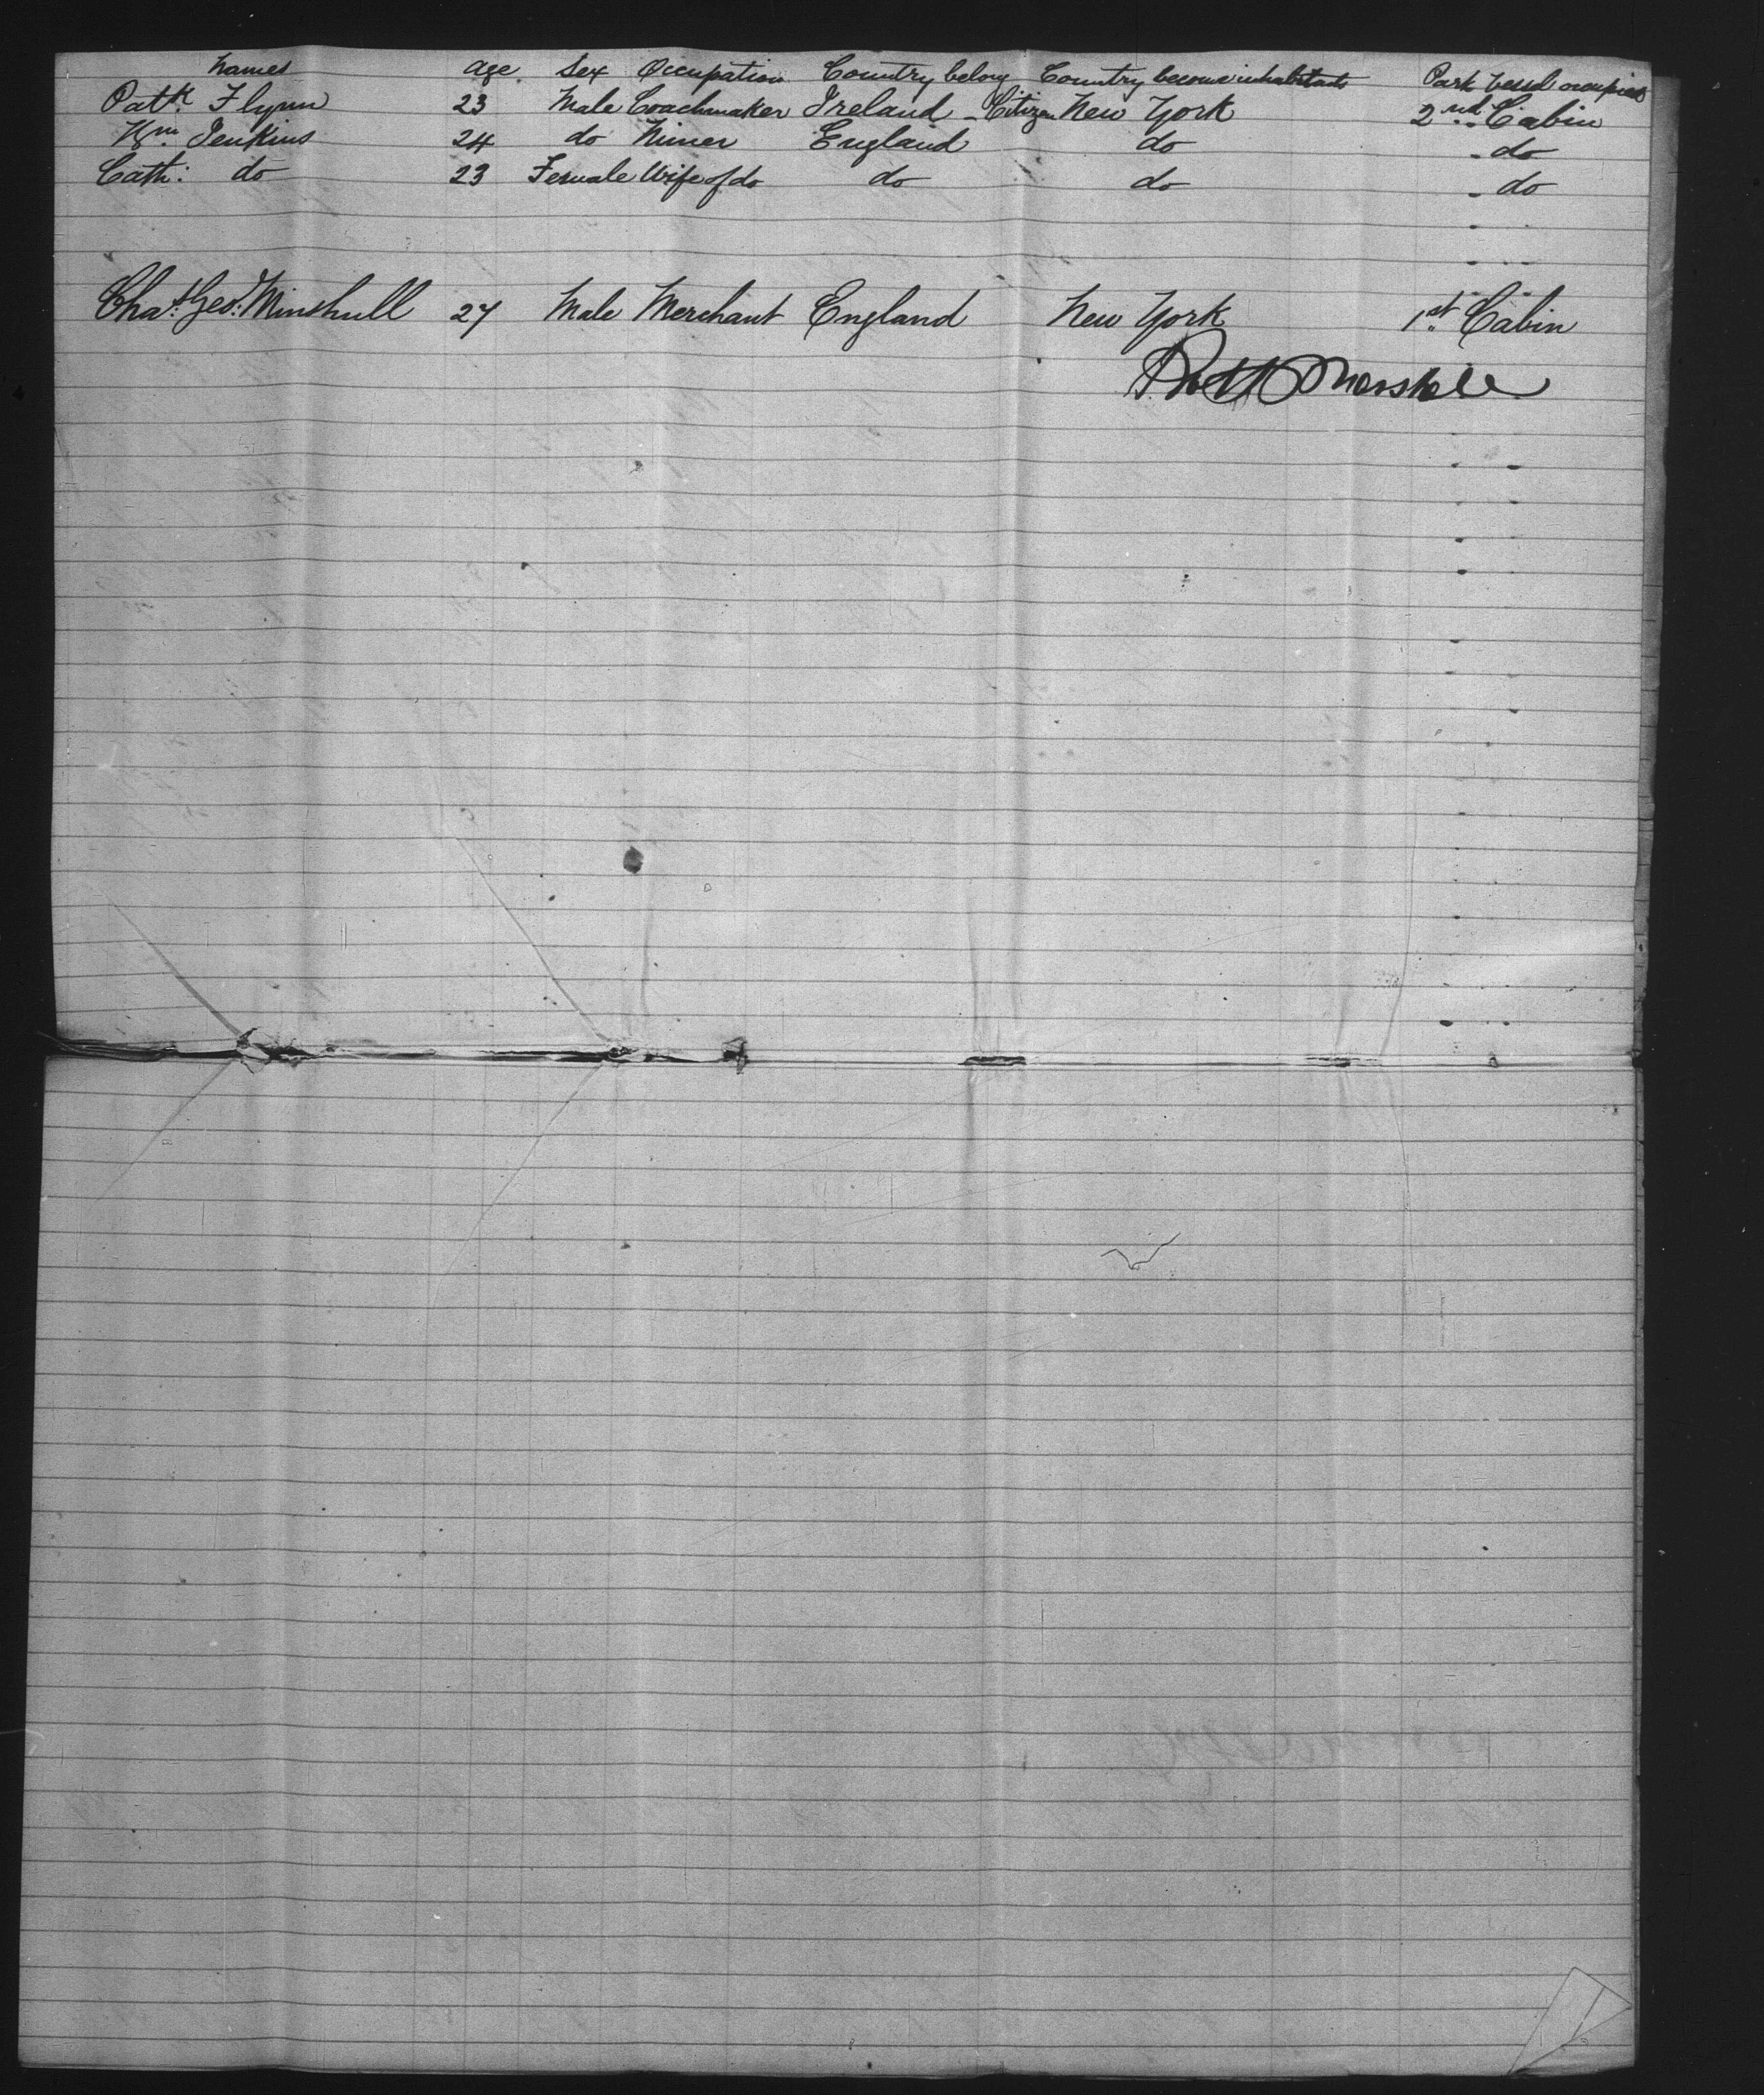 Names age. Sex Occupation Country belong Country become inhabitants Part vessel occupied
Patk. Flynn 23 Male Coachmaker Ireland - Citizen New York 2nd Cabin
Wm. Jenkins 24 do Miner England do - do
Cath: do 23 Female Wife of do do do - do
Chas. Geo. Minshull 27 Male Merchant England New York 1st Cabin